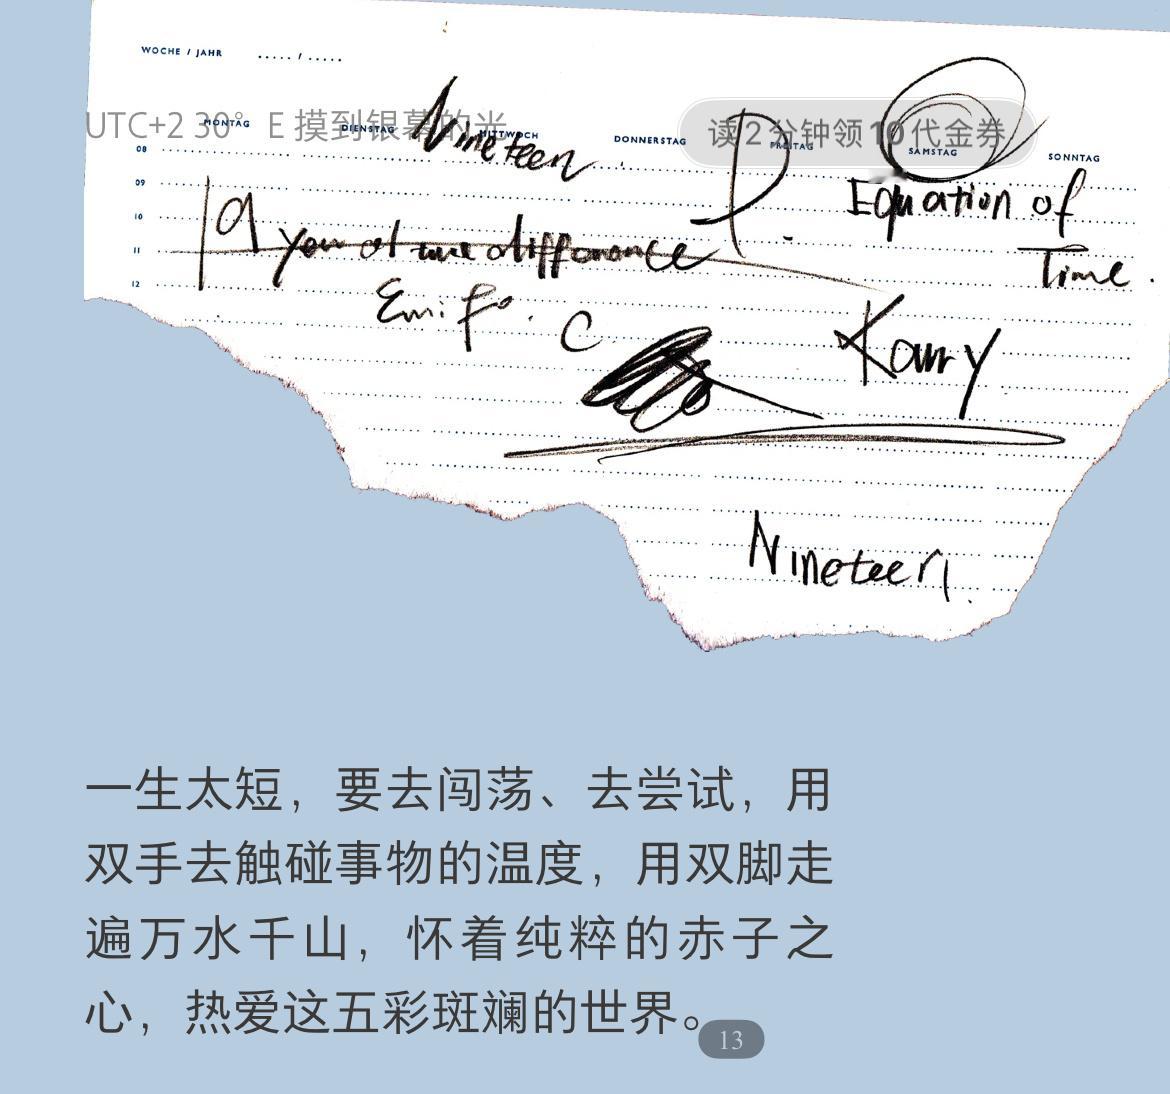 WOCHE / JAHR ...../.....
UTC+2 30° E 摸到银幕的光
读2分钟领10代金券
MONTAG DIENSTAG MITTWOCH DONNERSTAG FREITAG SAMSTAG SONNTAG
Nineteen
P.
08
09
10
11
12
Equation of
Time.
19 year of time difference
C
Karry
Nineteen.
一生太短，要去闯荡、去尝试，用
双手去触碰事物的温度，用双脚走
遍万水千山，怀着纯粹的赤子之
心，热爱这五彩斑斓的世界。
13